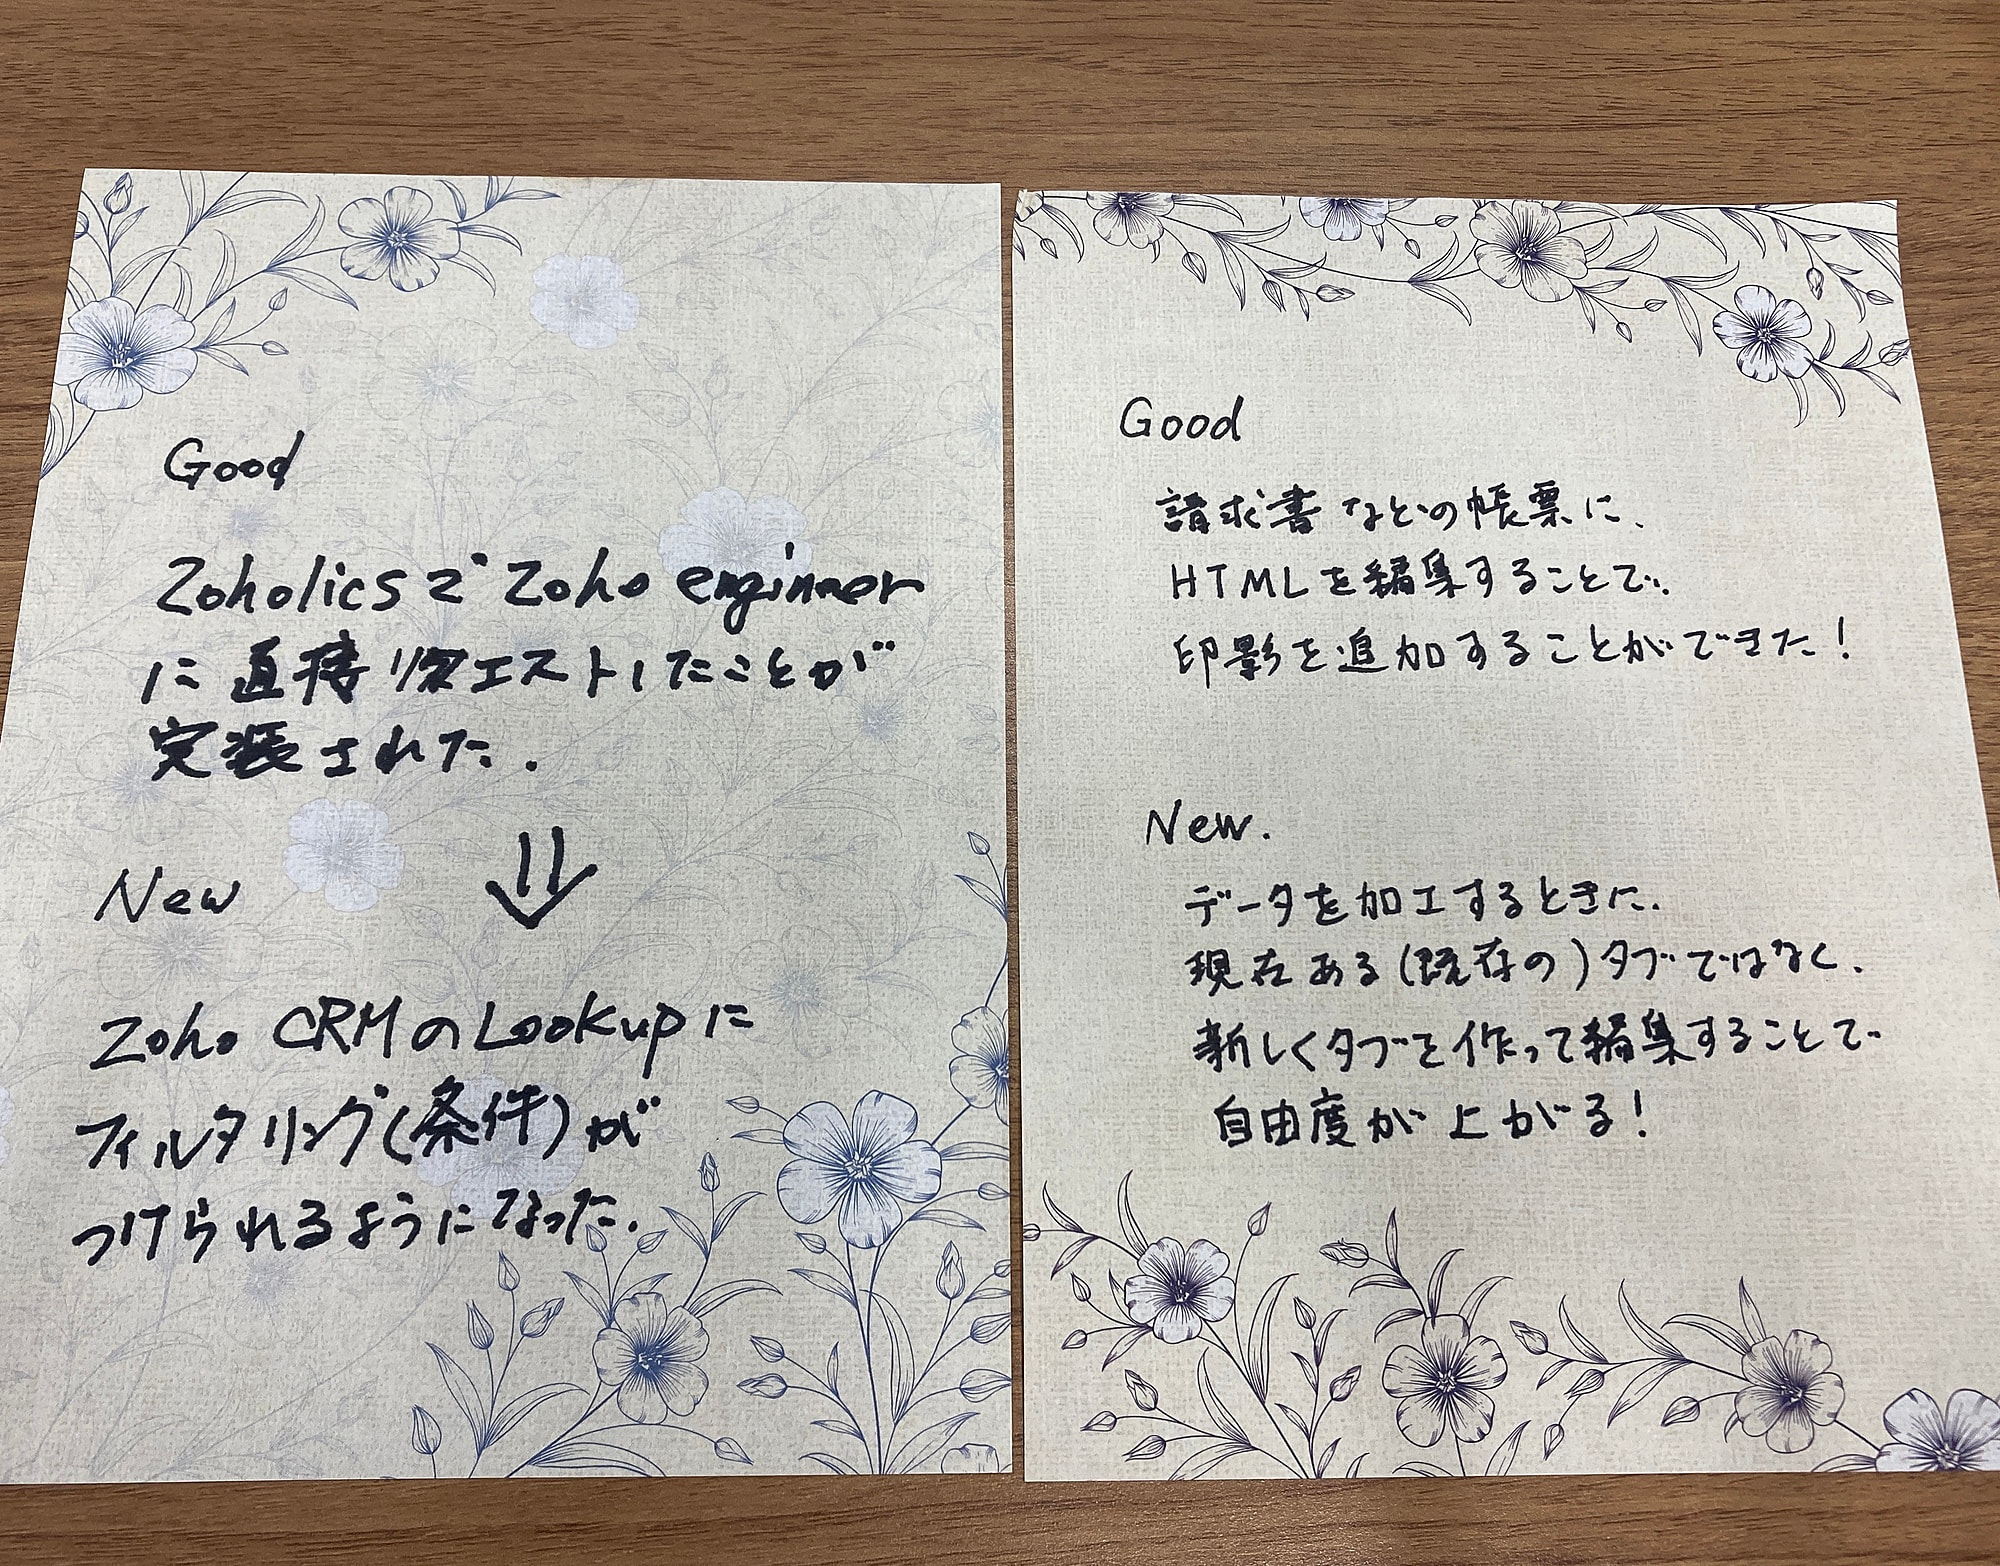 Good
Zoholicsで Zoho enginner
に直接リクエストしたことが
実装された.
New
⇓
Zoho CRMのLookupに
フィルタリング(条件)が
つけられるようになった.
Good
請求書などの帳票に、
HTMLを編集することで、
印影を追加することができた!
New.
データを加工するときに、
現在ある(既存の)タブではなく、
新しくタブを作って編集することで
自由度が上がる!